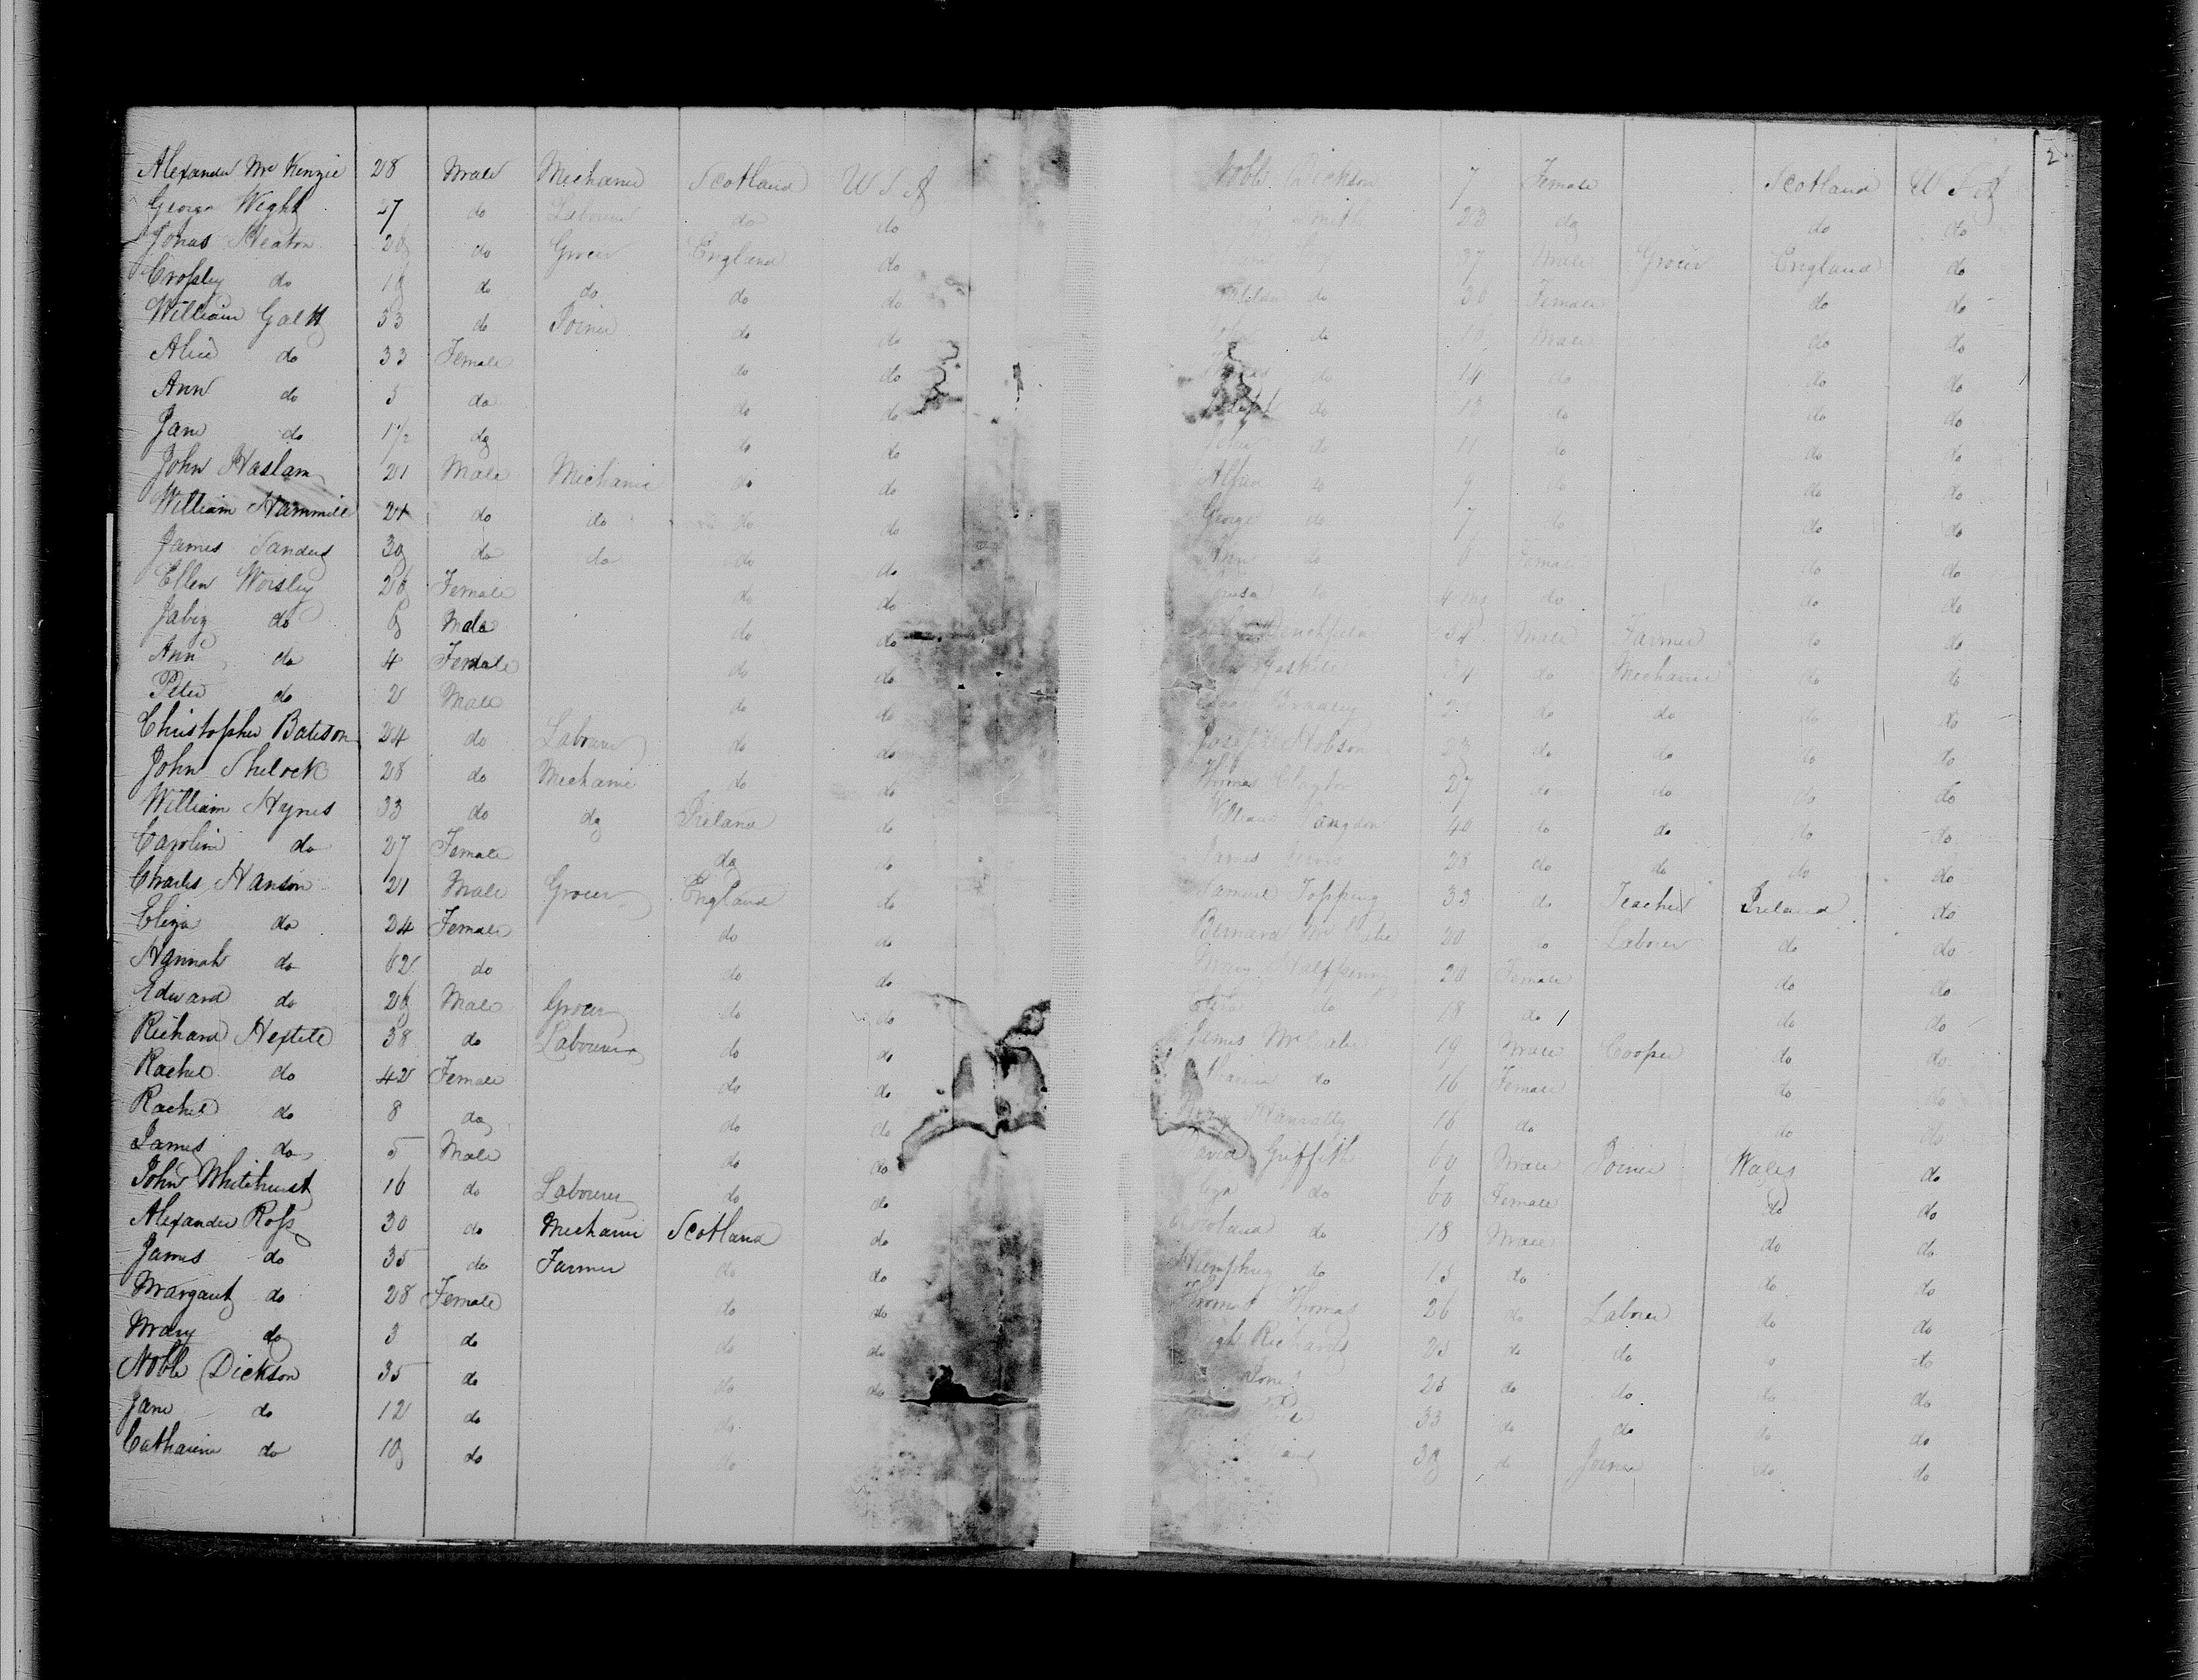 Alexander Mc Kenzie 28 Male Mechanic Scotland U S A
George Wight 27 do Labourer do do
Jonas Heaton 28 do Grocer England do
Crossley do 18 do do do do
William Galt 33 do Joiner do do
Alice do 33 Female do do
Ann do 5 do do do
Jane do 1 1/2 do do do
John Haslam 21 Male Mechanic do do
William Hammill 21 do do do do
James Sanders 30 do do do do
Ellen Worsley 26 Female do do
Jabez do 6 Male do do
Ann do 4 Female do do
Peter do 2 Male do do
Christopher Bateson 24 do Labourer do do
John Shelock 28 do Mechanic do do
William Hynes 33 do do Ireland do
Caroline do 27 Female do do
Charles Hanson 21 Male Grocer England do
Eliza do 24 Female do do
Hannah do 62 do do do
Edward do 26 Male Grocer do do
Richard 38 do Labourer do do
Rachel do 42 Female do do
Rachel do 8 do do do
James do 5 Male do do
John Whitehurst 16 do Labourer do do
Alexander Ross 30 do Mechanic Scotland do
James do 35 do Farmer do do
Margaret do 28 Female do do
Mary do 3 do do do
Noble Dickson 35 do do do
Jane do 12 do do
Catharine do 10 do do
2
Noble Dickson 7 Female Scotland U S A
Smith 22 do do do
37 Male Grocer England do
do 36 Female do do
John do 16 Male do do
Thomas do 14 do do do
Joseph do 13 do do do
do 11 do do do
Alfred do 9 do do do
George do 7 do do do
Ann do 6 Female do do
do 4 do do do
34 Male Farmer do do
do Mechanic do do
Bradley do do do do
Joseph Hobson 23 do do do do
Thomas Clayton 27 do do do do
William Congdon 40 do do do do
James 28 do do do do
Samuel Topping 33 do Teacher Ireland do
Bernard Mc Cabe 20 do Laborer do do
Mary Halfpenny 20 Female do do
do 18 do do do
James Mc Cabe 19 Male Cooper do do
Catharine do 16 Female do do
16 do do do
David Griffith 60 Male Joiner Wales do
Eliza do 60 Female do do
Rowland do 18 Male do do
Humphrey do 15 do do do
Thomas Thomas 26 do Laborer do do
Richards 25 do do do do
Jones 25 do do do do
33 do do do do
38 do Joiner do do